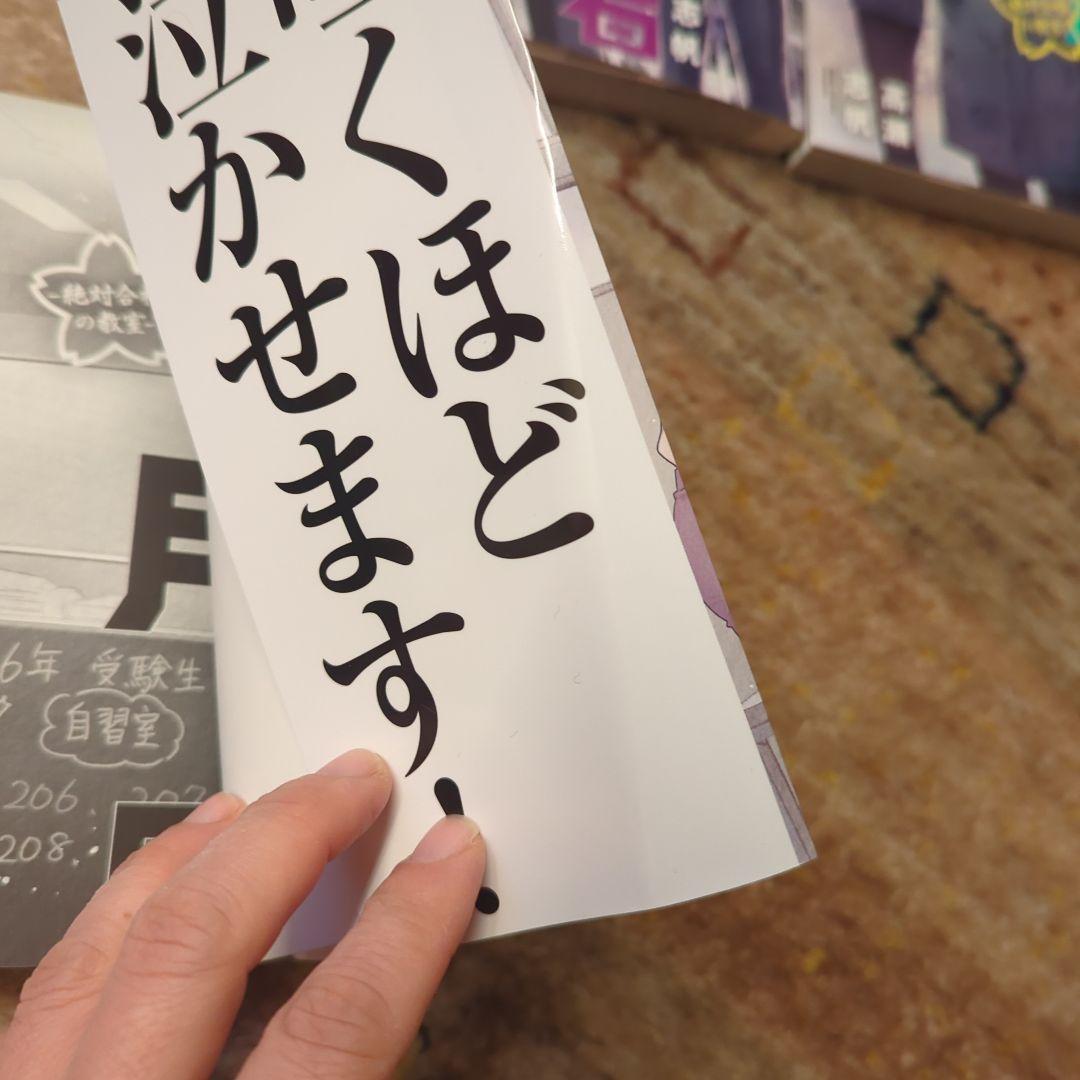 くほど
泣かせます!
-絶対合
の教室-
月
6年 受験生
自習室
206.
208.
志帆
高瀬
志帆